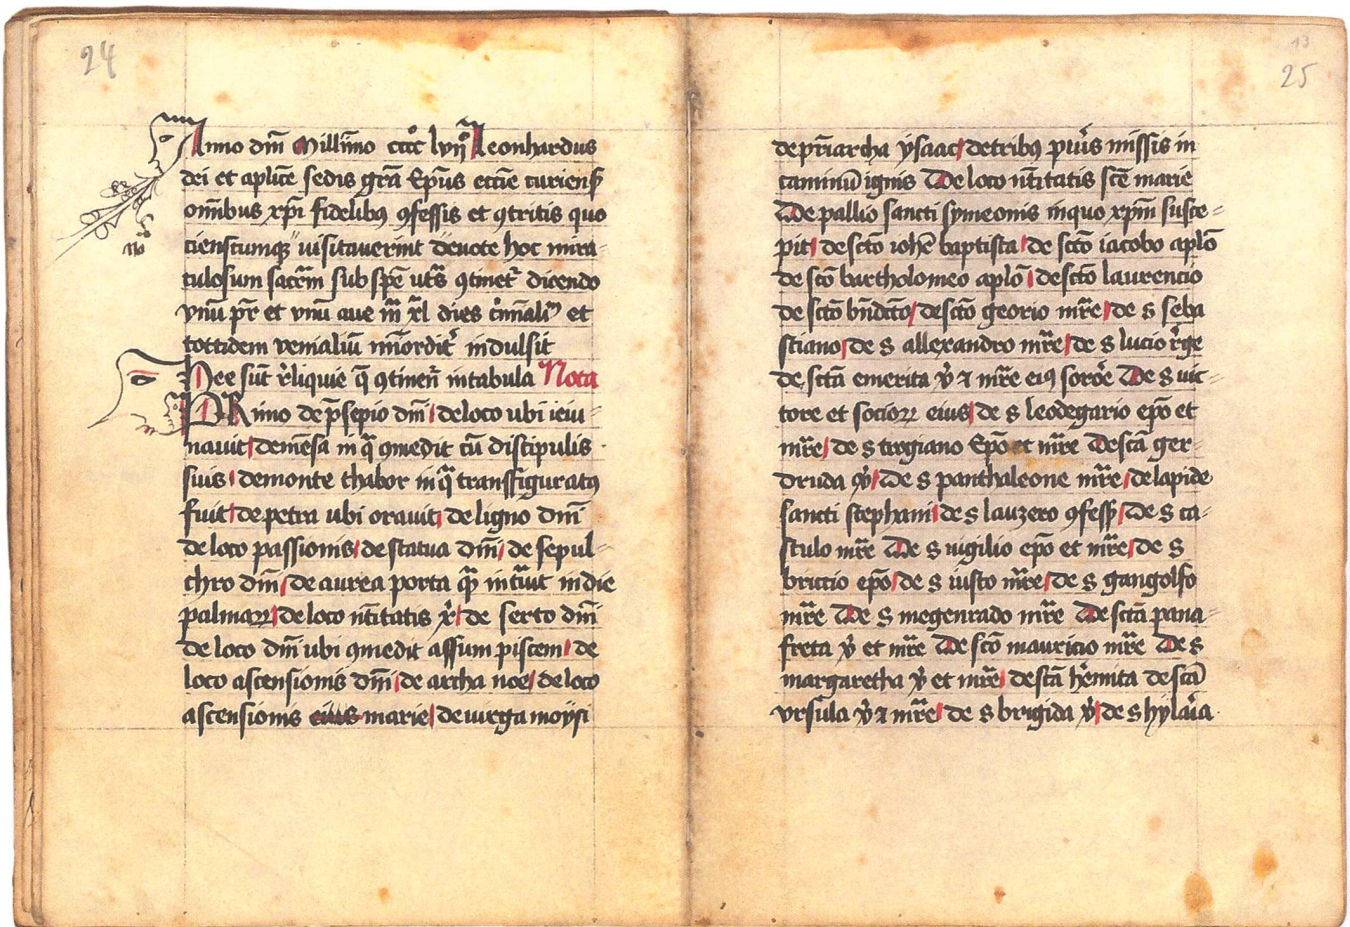 24
Anno dm̄ Millīmo ccccͦ lvijͦ Leonhardus
dei et aplice sedis gr̄a Ep̄us eccīe curiens̄
om̄ibus xp̄i fidelibꝯ ꝯfessis et ꝯtritis quo
cienscumqꝫ visitauerint deuote hoc mira-
culosum sacr̄m sub spē vtꝰs ꝯtinet̄ dicendo
vnū pr̄ et vnū aue m̄ xl dies c'm̄aliū et
tottidem venialiū m̄iordit' indulsit
Hee sūt r̄liquie q̄ ꝯtinen̄ in tabula Nota
PRimo de p̄sepio dm̄ de loco ubi ieiu-
nauit de mēsa in q̄ ꝯmedit cū discipulis
suis de monte thabor in q̄ transfiguratꝯ
fuit de petra ubi orauit de ligno dm̄
de loco passionis de statua dm̄ de sepul-
chro dm̄ de aurea porta q̄ intrāuit in die
palmaꝝ de loco nr̄itatis x̄ de serto dm̄
de loco dm̄ ubi ꝯmedit assum piscem de
loco ascensionis dm̄ de archa noe de loco
ascensionis eius marie de virga moysi
13
25
de pr̄iarcha ysaac de tribꝯ pueris missis in
caminū ignis De loco nr̄itatis scē marie
De pallio sancti symeonis in quo xpm̄ susce-
pit de sctō iohē baptista de sctō iacobo aplō
de scō bartholomeo aplō de sctō laurencio
de sctō bn̄dcō de sctō georio mr̄e de s seba
stiano de s allexandro mr̄e de s lucio r̄ge
de sctā emerita v̄ ⁊ mr̄e eiꝯ sorōe De s vic-
tore et socioꝝ eius de s leodegario ep̄o et
mr̄e de s trogiano Ep̄o et mr̄e De scā ger-
druda v̄ De s panthaleone mr̄e de lapide
sancti stephani de s lauzero ꝯfess̄ De s ca-
stulo mr̄e De s vigilio ep̄o et mr̄e de s
briccio ep̄o de s iusto mr̄e de s gangolfo
mr̄e De s megenrado mr̄e De sctā pana-
freta v̄ et mr̄e De scō mauricio mr̄e De s
margaretha v̄ et mr̄e de scā h̄emita de scā
vrsula v̄ ⁊ mr̄e de s brigida v̄ de s hylar̄ia